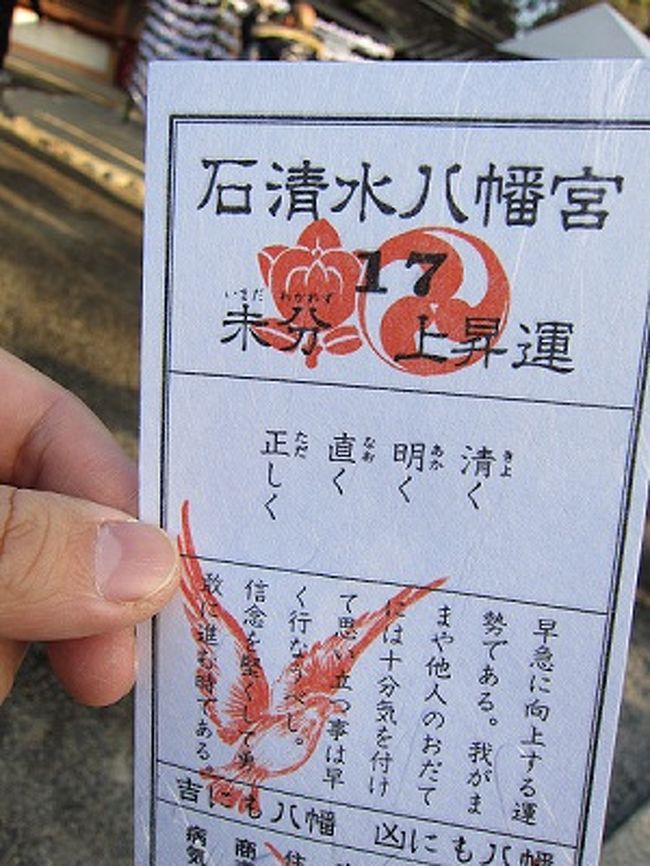 石清水八幡宮
17
いまだ わかれず
未分 上昇運
清く
きよ
明く
あか
直く
なお
正しく
ただ
早急に向上する運
勢である。我がま
まや他人のおだて
には十分気を付け
て思い立つ事は早
く行なうべし。
信念を堅くして勇
敢に進む時である。
吉にも八幡 凶にも八幡
商
病気